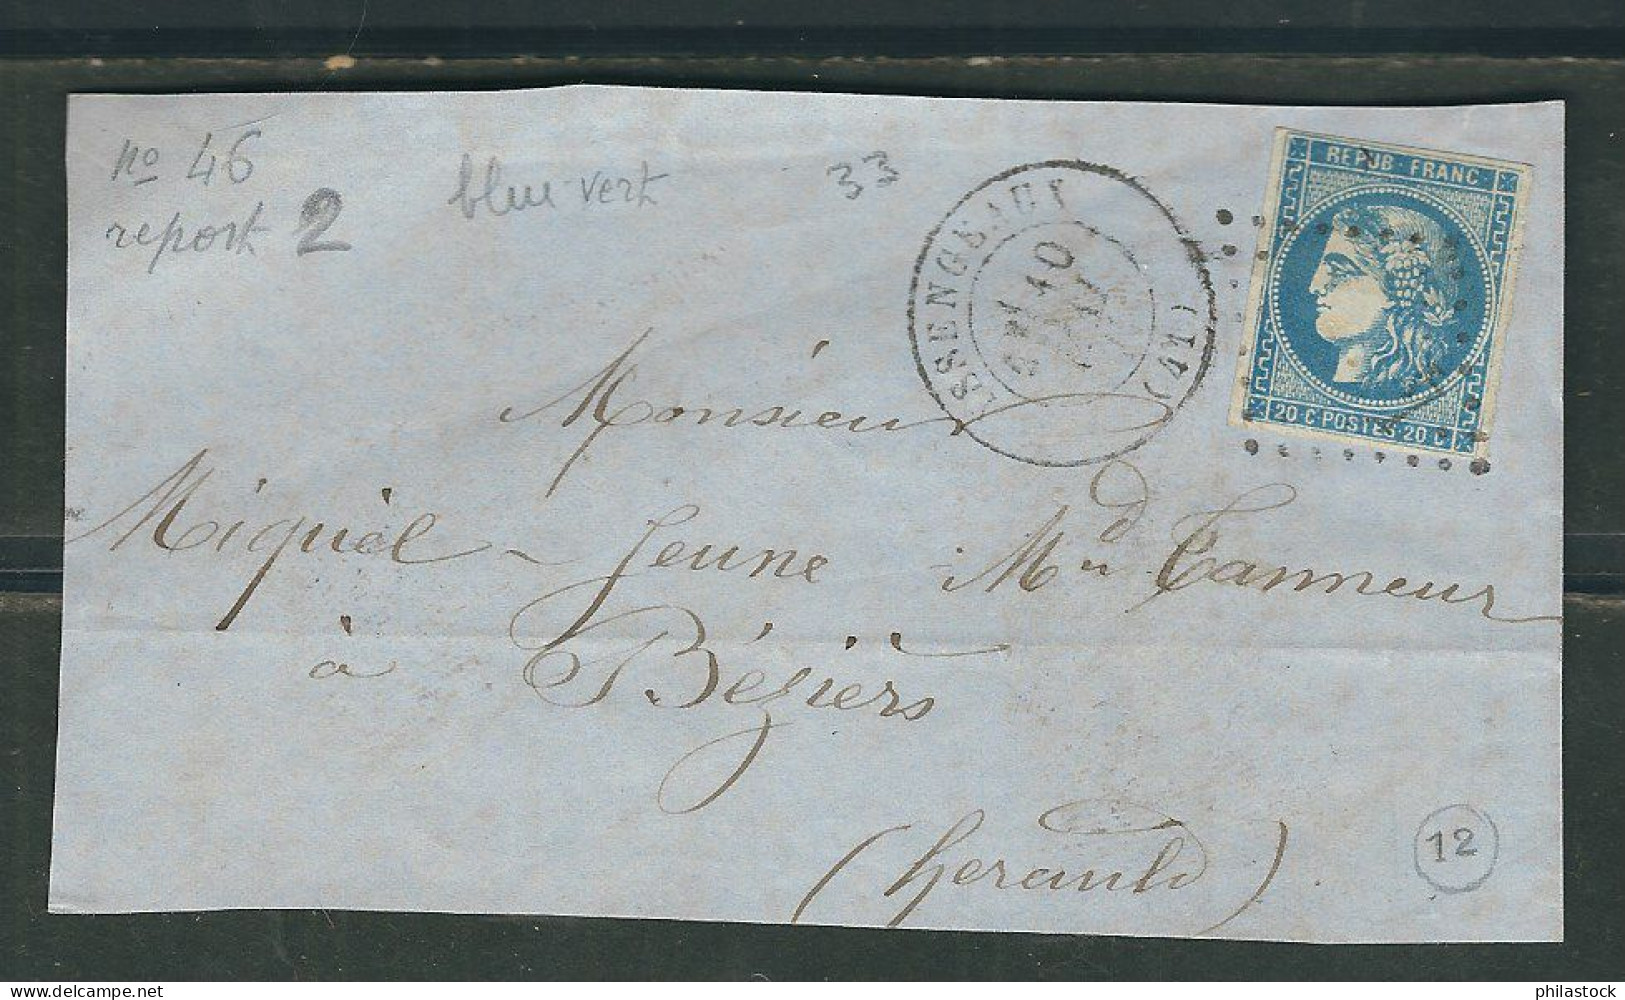 no 46
report 2
bleu-vert
33
REPUB · FRANC
20 C POSTES 20 C
SSENGEAUX
10
(41)
Monsieur
Miquel Jeune Md Tanneur
à Béziers
(herault)
12
delcampe.net
philastock